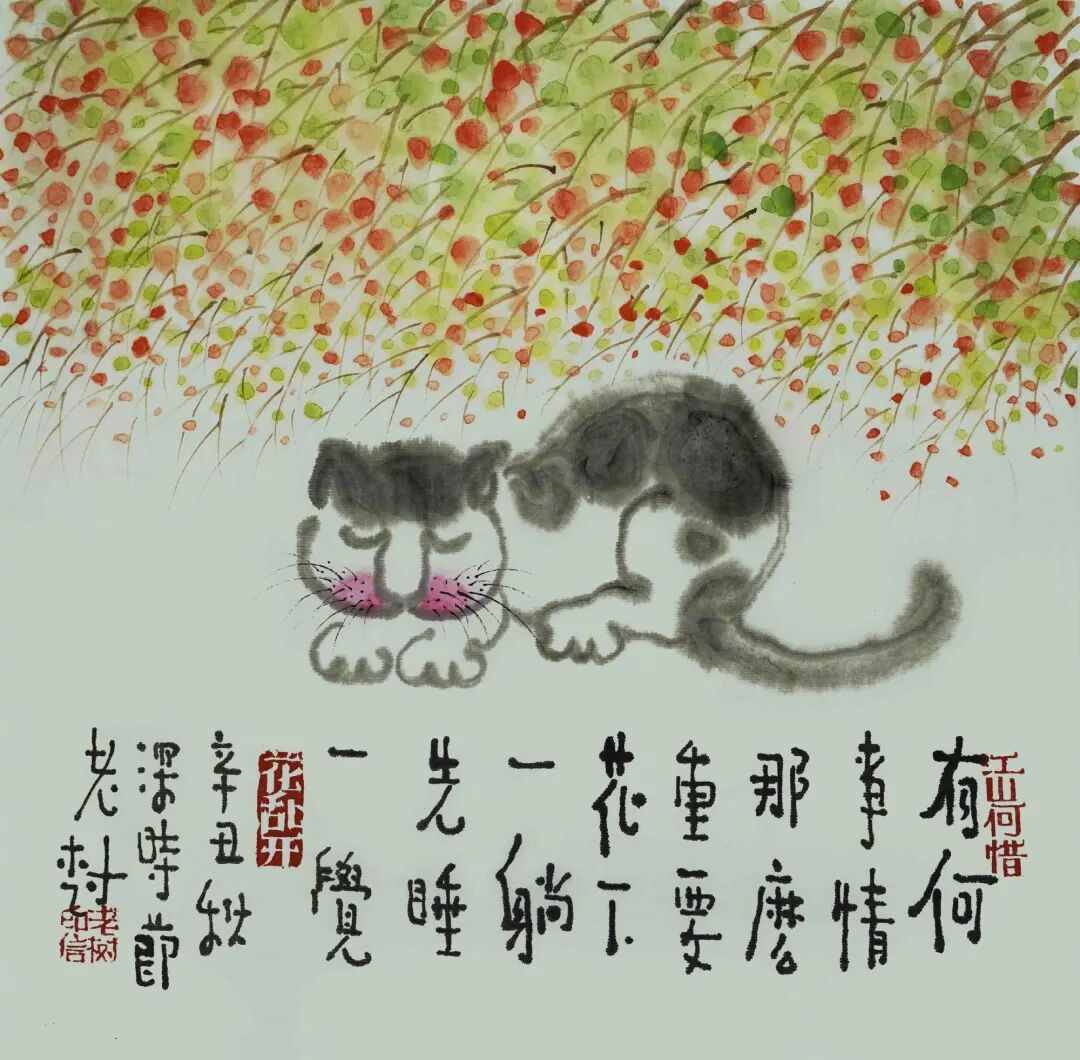 江山何惜
有何
事情
那麼
重要
花下
一躺
先睡
一覺
花乱开
辛丑秋
深時節
老樹
老树印信